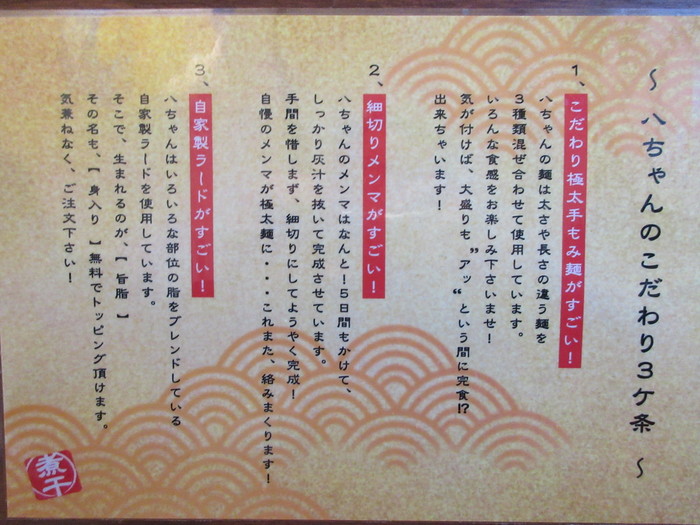 ～ 八ちゃんのこだわり3ケ条 ～
1、こだわり極太手もみ麺がすごい！
八ちゃんの麺は太さや長さの違う麺を
3種類混ぜ合わせて使用しています。
いろんな食感をお楽しみ下さいませ！
気が付けば、大盛りも〝アッ〟という間に完食!?
出来ちゃいます！
2、細切りメンマがすごい！
八ちゃんのメンマはなんと！5日間もかけて、
しっかり灰汁を抜いて完成させています。
手間を惜しまず、細切りにしてようやく完成！
自慢のメンマが極太麺に・・・これまた、絡みまくります！
3、自家製ラードがすごい！
八ちゃんはいろいろな部位の脂をブレンドしている
自家製ラードを使用しています。
そこで、生まれるのが、【 旨脂 】
その名も、【 身入り 】無料でトッピング頂けます。
気兼ねなく、ご注文下さい！
煮干